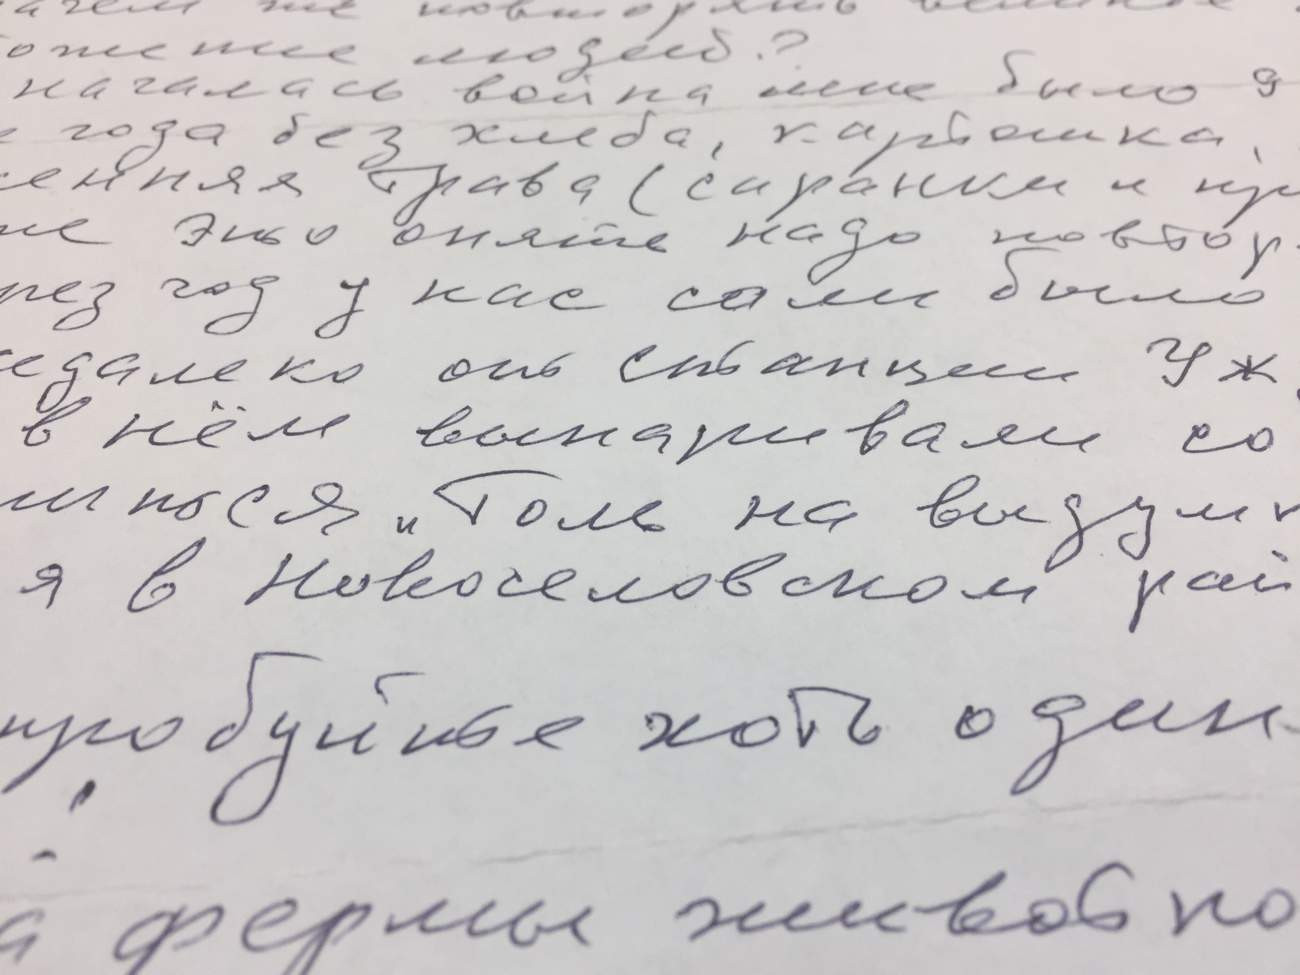 зачем же повторять великое
ложение людей?
началась война мне было 9
е года без хлеба, картошка,
сенняя трава (саранки и пр
же это опять надо повтор
рез год у нас соли было
недалеко от станции Уж
в нём выпаривали со
лилося "Голь на выдумк
я в Новоселовском рай
пробуйте хоть один
й фермы животно